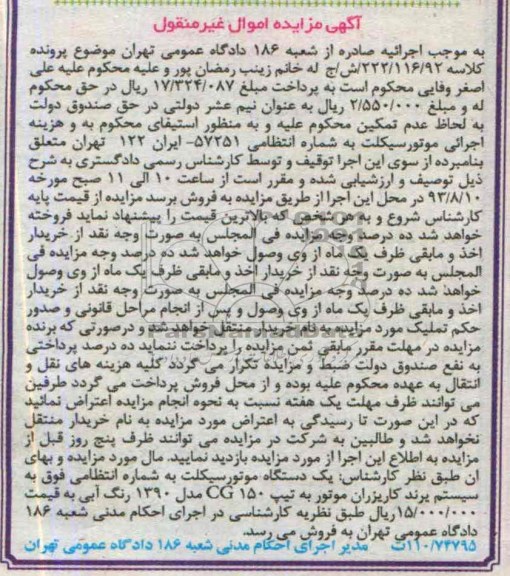 آگهی مزایده اموال غیرمنقول
به موجب اجرائیه صادره از شعبه ۱۸۶ دادگاه عمومی تهران موضوع پرونده
کلاسه ۲۲۲/۱۱۶/۹۲/ش/ج له خانم زینب رمضان پور و علیه محکوم علیه علی
اصغر وفایی محکوم است به پرداخت مبلغ ۱۷/۳۲۴/۰۸۷ ریال در حق محکوم
له و مبلغ ۲/۵۵۰/۰۰۰ ریال به عنوان نیم عشر دولتی در حق صندوق دولت
به لحاظ عدم تمکین محکوم علیه و به منظور استیفای محکوم به و هزینه
اجرائی موتورسیکلت به شماره انتظامی ۵۷۲۵۱- ایران ۱۲۲ تهران متعلق
بنامبرده از سوی این اجرا توقیف و توسط کارشناس رسمی دادگستری به شرح
ذیل توصیف و ارزشیابی شده و مقرر است از ساعت ۱۰ الی ۱۱ صبح مورخه
۹۳/۸/۱۰ در محل این اجرا از طریق مزایده به فروش برسد مزایده از قیمت پایه
کارشناس شروع و به هر شخصی که بالاترین قیمت را پیشنهاد نماید فروخته
خواهد شد ده درصد وجه مزایده فی المجلس به صورت وجه نقد از خریدار
اخذ و مابقی ظرف یک ماه از وی وصول خواهد شد ده درصد وجه مزایده فی
المجلس به صورت وجه نقد از خریدار اخذ و مابقی ظرف یک ماه از وی وصول
خواهد شد ده درصد وجه مزایده فی المجلس به صورت وجه نقد از خریدار
اخذ و مابقی ظرف یک ماه از وی وصول و پس از انجام مراحل قانونی و صدور
حکم تملیک مورد مزایده به نام خریدار منتقل خواهد شد و درصورتی که برنده
مزایده در مهلت مقرر مابقی ثمن مزایده را پرداخت ننماید ده درصد پرداختی
به نفع صندوق دولت ضبط و مزایده تکرار می گردد کلیه هزینه های نقل و
انتقال به عهده محکوم علیه بوده و از محل فروش پرداخت می گردد طرفین
می توانند ظرف مهلت یک هفته نسبت به نحوه انجام مزایده اعتراض نمائید
که در این صورت تا رسیدگی به اعتراض مورد مزایده به نام خریدار منتقل
نخواهد شد و طالبین به شرکت در مزایده می توانند ظرف پنج روز قبل از
مزایده به اطلاع این اجرا از مورد مزایده بازدید نمایید. مال مورد مزایده و بهای
ان طبق نظر کارشناس: یک دستگاه موتورسیکلت به شماره انتظامی فوق به
سیستم برند کاریزران موتور به تیپ CG ۱۵۰ مدل ۱۳۹۰ رنگ آبی به قیمت
۱۵/۰۰۰/۰۰۰ریال طبق نظریه کارشناسی در اجرای احکام مدنی شعبه ۱۸۶
دادگاه عمومی تهران به فروش می رسد.
۱۱۰/۷۴۷۹۵ت مدیر اجرای احکام مدنی شعبه ۱۸۶ دادگاه عمومی تهران